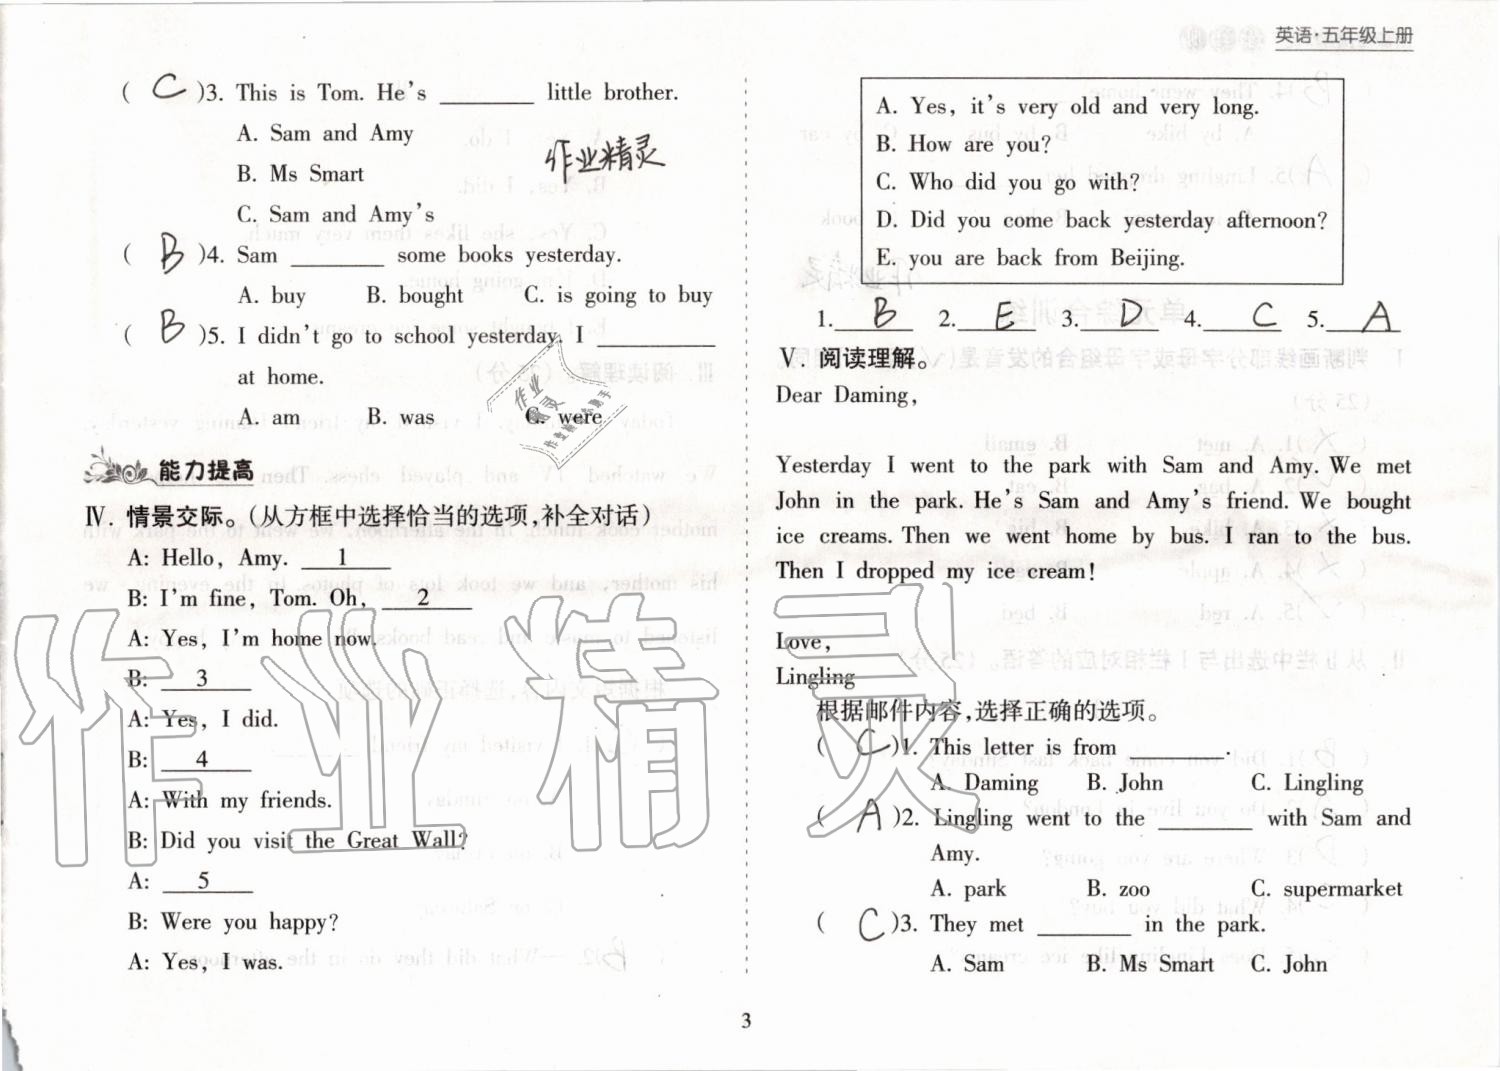 英语·五年级上册
( C )3. This is Tom. He's ________ little brother.
A. Sam and Amy
B. Ms Smart
C. Sam and Amy's
作业精灵
( B )4. Sam ________ some books yesterday.
A. buy B. bought C. is going to buy
( B )5. I didn't go to school yesterday. I ________
at home.
A. am B. was C. were
能力提高
Ⅳ. 情景交际。(从方框中选择恰当的选项,补全对话)
A: Hello, Amy. 1
B: I'm fine, Tom. Oh, 2
A: Yes, I'm home now.
B: 3
A: Yes, I did.
B: 4
A: With my friends.
B: Did you visit the Great Wall?
A: 5
B: Were you happy?
A: Yes, I was.
A. Yes, it's very old and very long.
B. How are you?
C. Who did you go with?
D. Did you come back yesterday afternoon?
E. you are back from Beijing.
1. B 2. E 3. D 4. C 5. A
Ⅴ. 阅读理解。
Dear Daming,
Yesterday I went to the park with Sam and Amy. We met
John in the park. He's Sam and Amy's friend. We bought
ice creams. Then we went home by bus. I ran to the bus.
Then I dropped my ice cream!
Love,
Lingling
根据邮件内容,选择正确的选项。
( C )1. This letter is from ________.
A. Daming B. John C. Lingling
( A )2. Lingling went to the ________ with Sam and
Amy.
A. park B. zoo C. supermarket
( C )3. They met ________ in the park.
A. Sam B. Ms Smart C. John
3
作业精灵